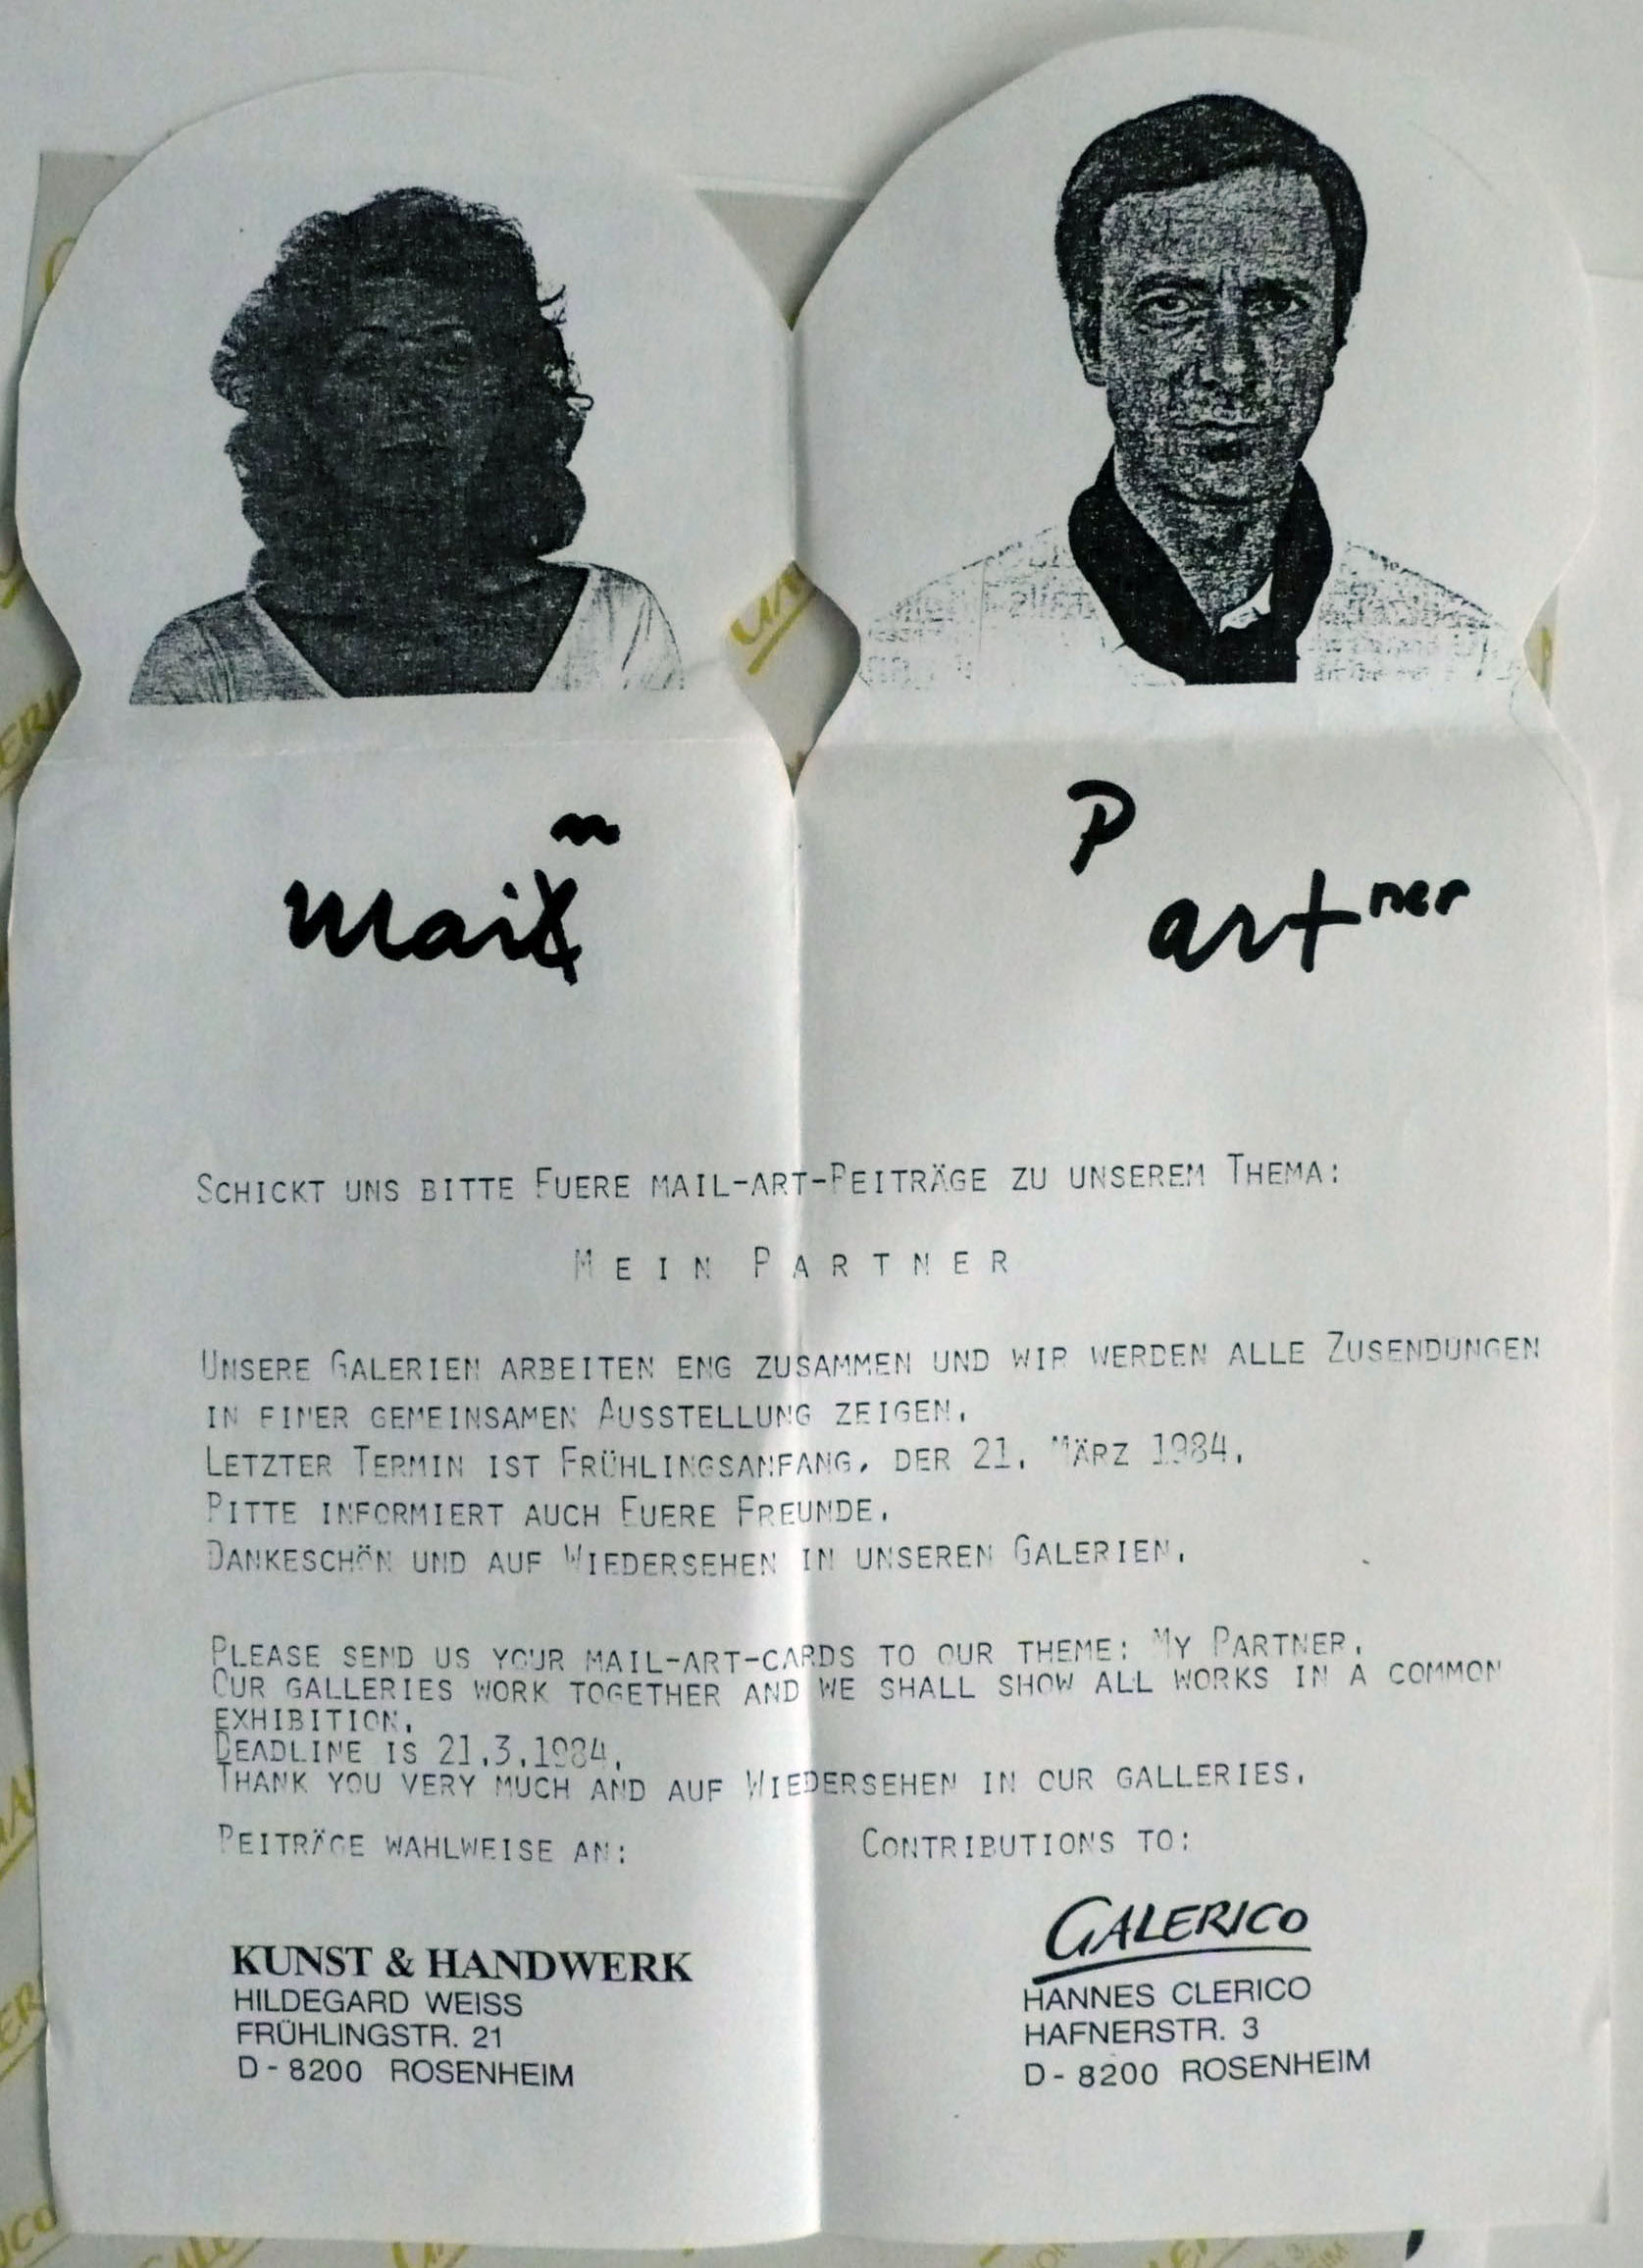 mail n
P
art ner
SCHICKT UNS BITTE EUERE MAIL-ART-BEITRÄGE ZU UNSEREM THEMA:
MEIN PARTNER
UNSERE GALERIEN ARBEITEN ENG ZUSAMMEN UND WIR WERDEN ALLE ZUSENDUNGEN
IN EINER GEMEINSAMEN AUSSTELLUNG ZEIGEN.
LETZTER TERMIN IST FRÜHLINGSANFANG, DER 21. MÄRZ 1984.
BITTE INFORMIERT AUCH EUERE FREUNDE.
DANKESCHÖN UND AUF WIEDERSEHEN IN UNSEREN GALERIEN.
PLEASE SEND US YOUR MAIL-ART-CARDS TO OUR THEME: MY PARTNER.
OUR GALLERIES WORK TOGETHER AND WE SHALL SHOW ALL WORKS IN A COMMON
EXHIBITION.
DEADLINE IS 21.3.1984.
THANK YOU VERY MUCH AND AUF WIEDERSEHEN IN OUR GALLERIES.
BEITRÄGE WAHLWEISE AN:
KUNST & HANDWERK
HILDEGARD WEISS
FRÜHLINGSTR. 21
D - 8200 ROSENHEIM
CONTRIBUTIONS TO:
GALERICO
HANNES CLERICO
HAFNERSTR. 3
D - 8200 ROSENHEIM